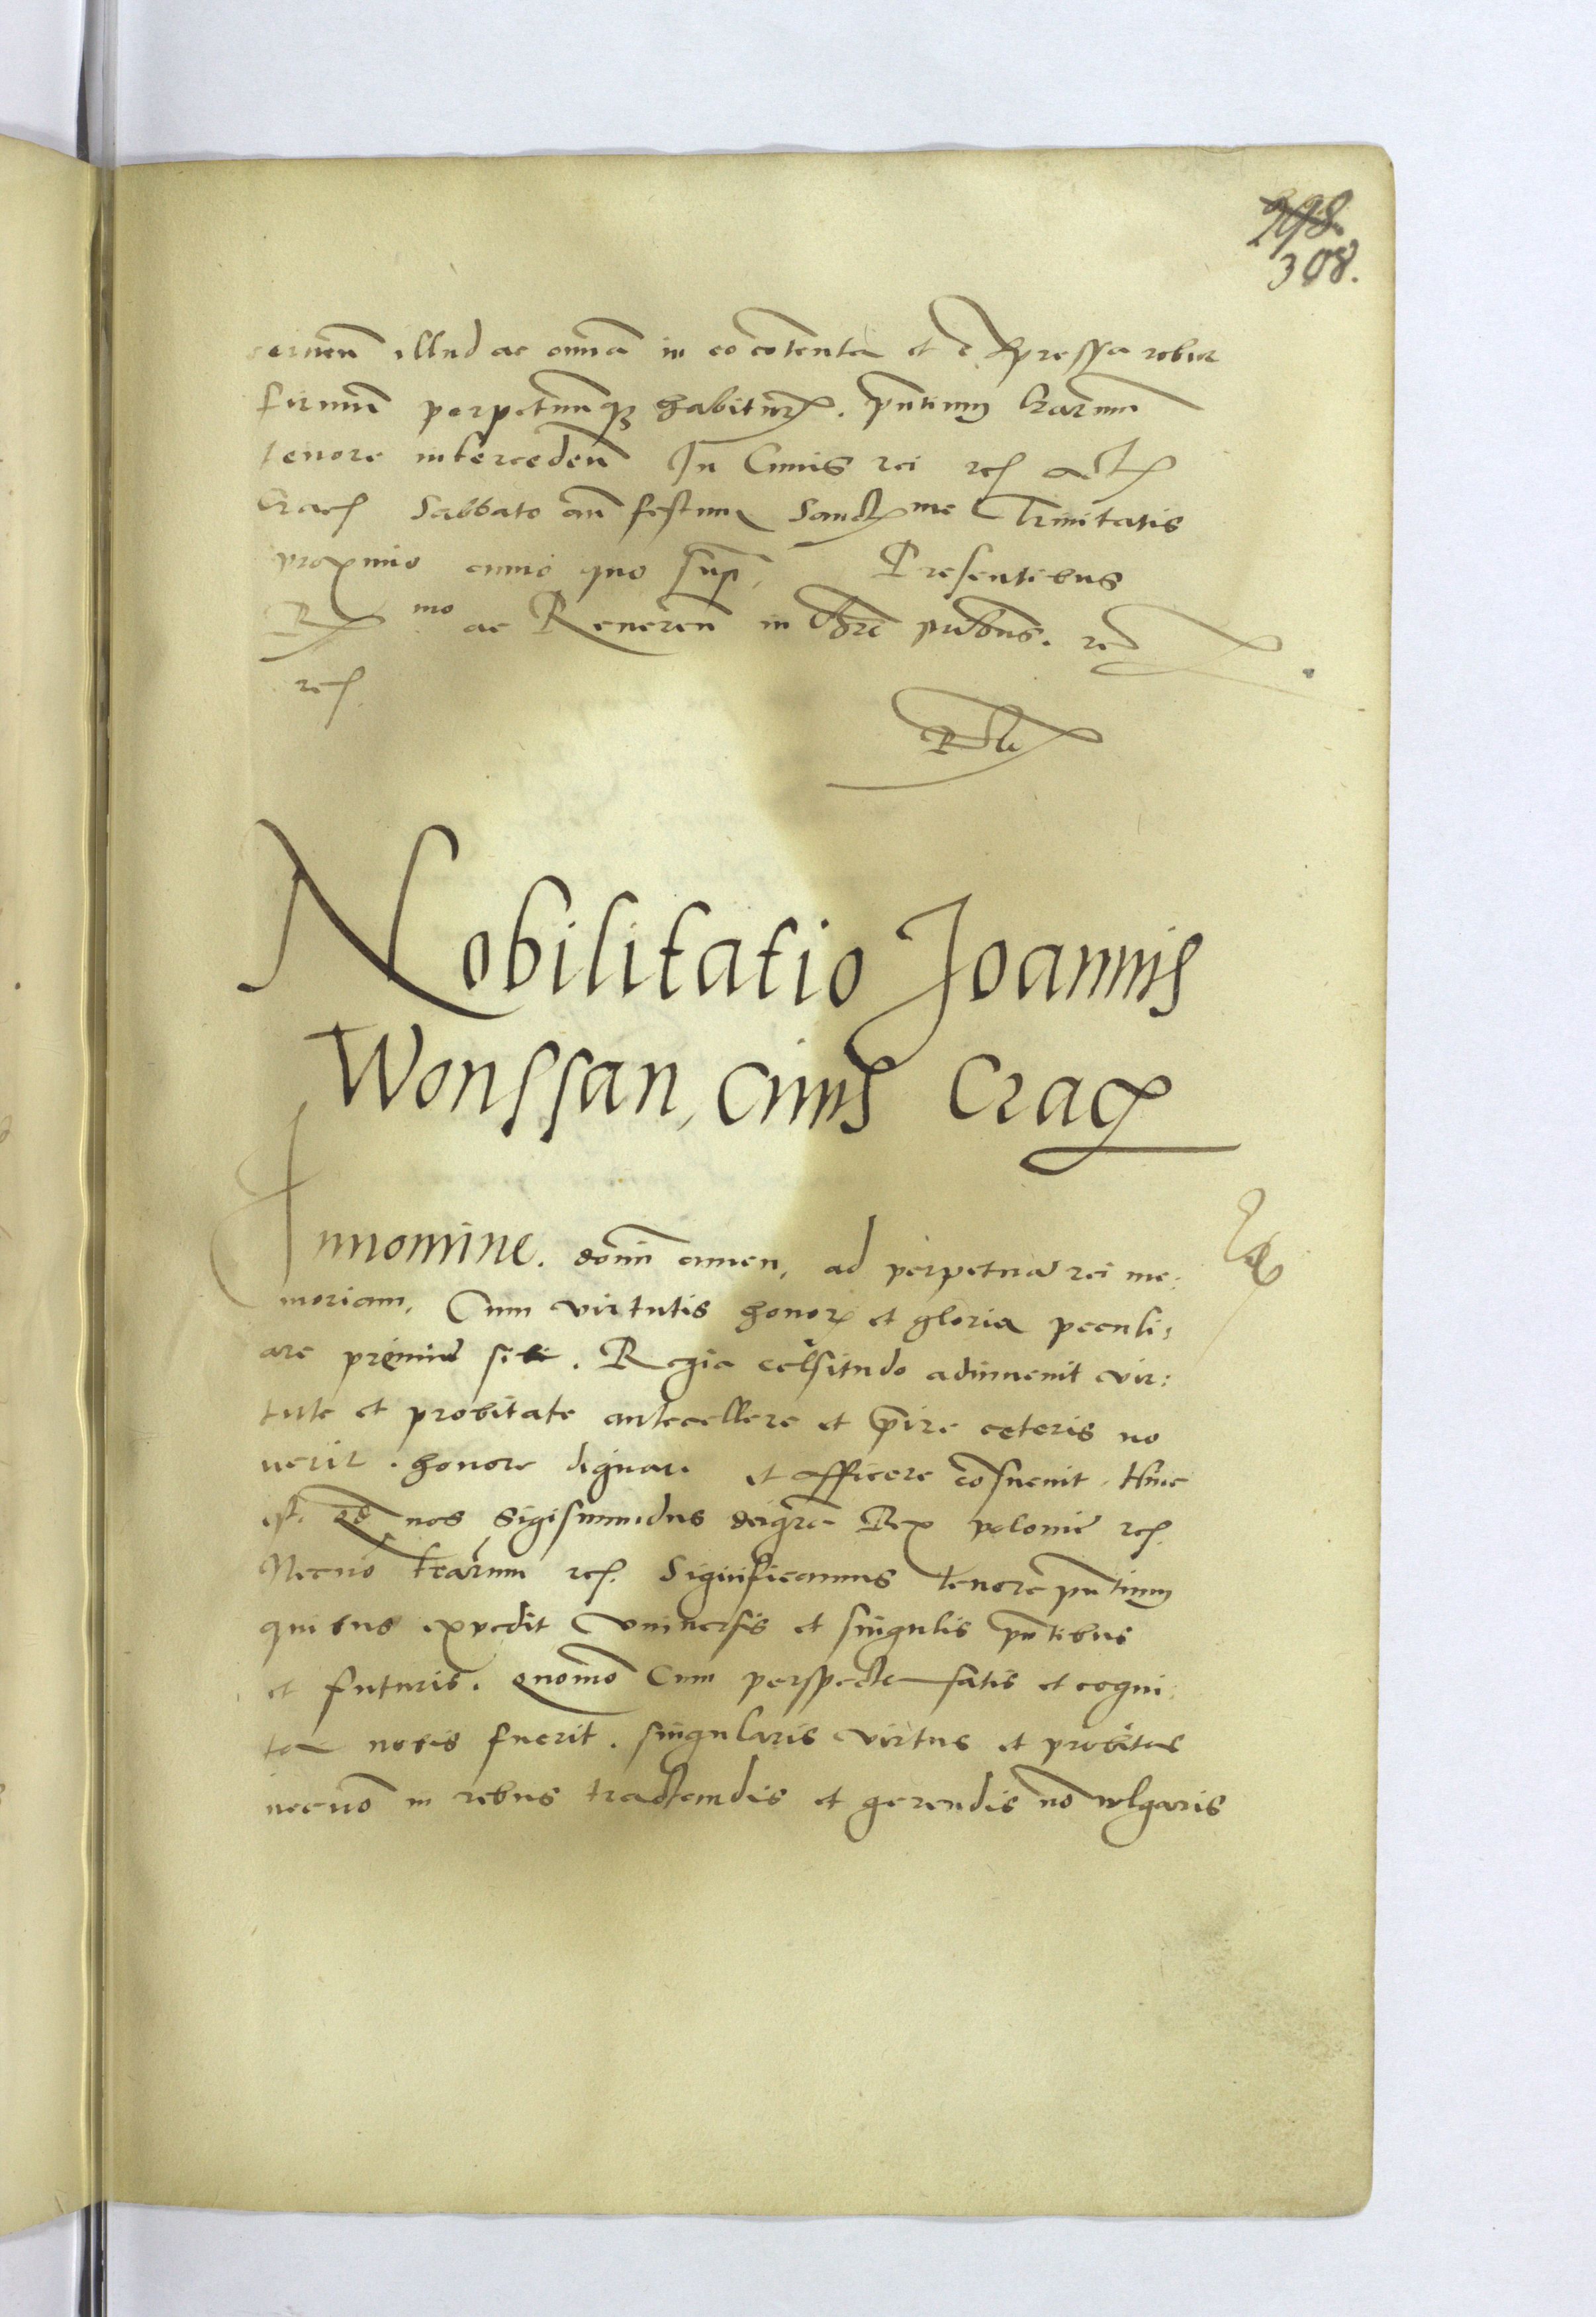 298.
308.
cernen̄ illud ac omnia in eo cōtenta et expressa robur
firmum perpetuumq₃ habiturꝝ. pn̄tium lr̄arum
tenore interceden̄ In Cuius rei rc̄ act
Crac̄ Sabbato an̄ festum Sanctme Trinitatis
proximo anno quo sup̄. Presentibus
Rmo ac Reueren̄ in Chr̄o pr̄ibus. rc̄
rc̄
Nobilitatio Joannis
Wonssan, ciuis Crac̄
In nomine. domini amen, ad perpetuā rei me:
moriam, Cum virtutis honor et gloria peculi:
are premiū sit. Regia celsitudo adinuenit vir:
tute et probitate antecellere et p̄ire ceteris no
uerit. honore dignari et afficere cōsueuit. Hinc
est. qd̄ nos Sigismundus dei gr̄a Rex polonie rc̄
Necnō terrarum rc̄. Significamus tenore pn̄tium
quibus expedit Vniuersis et singulis pn̄tibus
et futuris. quomō Cum perspecta satis et cogni:
ta nobis fuerit. singularis virtus et probitas
necnō in rebus tractandis et gerendis nō vulgaris